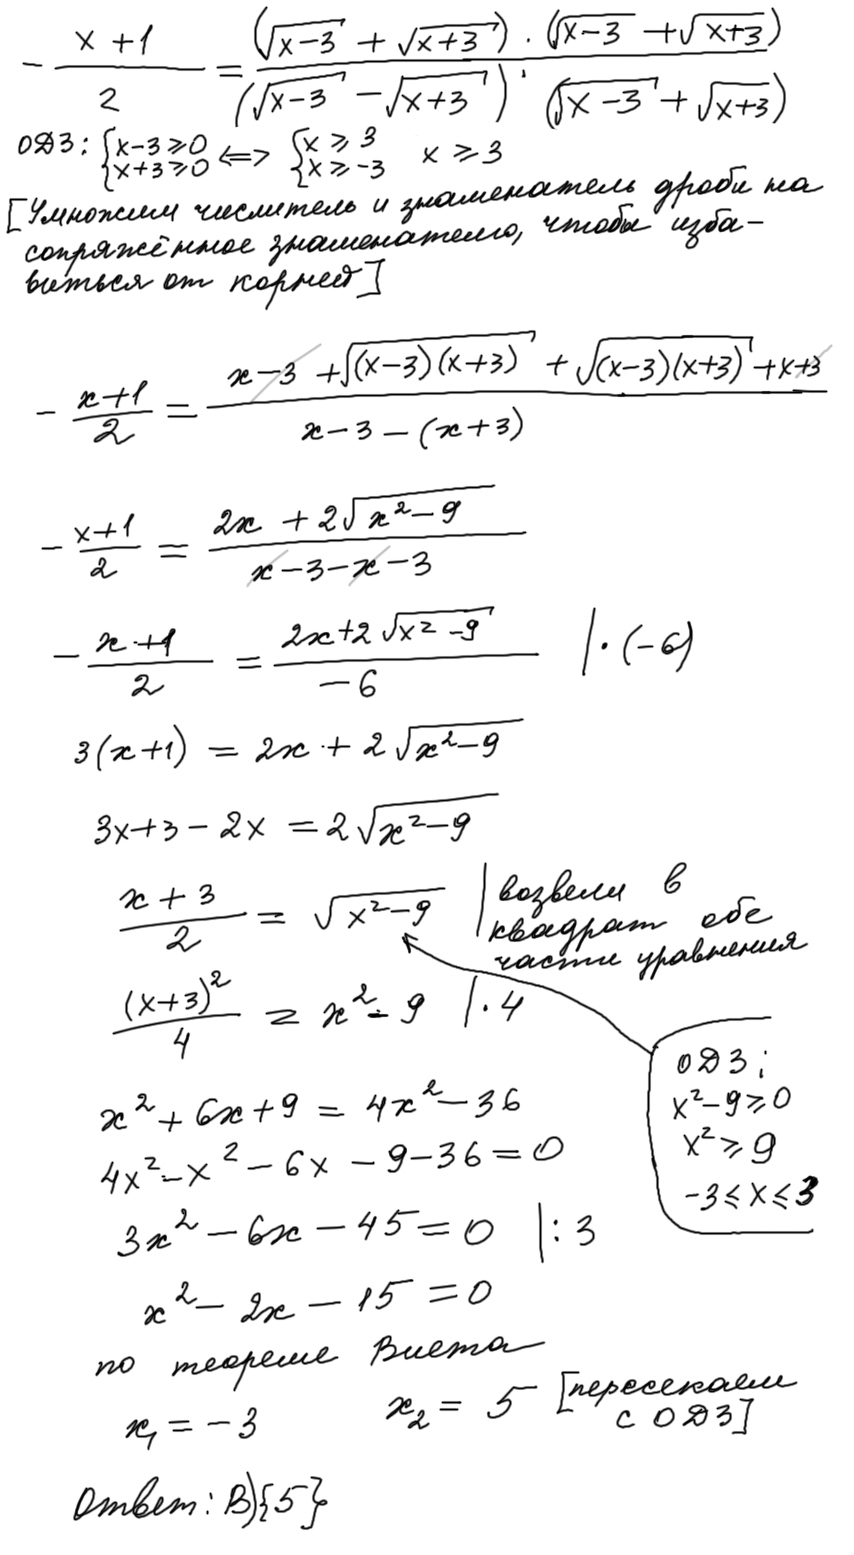 - (x+1)/2 = ((√(x-3) + √(x+3)) · (√(x-3) + √(x+3)))/((√(x-3) - √(x+3)) · (√(x-3) + √(x+3)))
ОДЗ: {x-3≥0 x+3≥0 <=> {x≥3 x≥-3 x≥3
[Умножим числитель и знаменатель дроби на
сопряжённое знаменателю, чтобы изба-
виться от корней]
- (x+1)/2 = (x-3 + √((x-3)(x+3)) + √((x-3)(x+3)) + x+3)/(x-3-(x+3))
- (x+1)/2 = (2x + 2√(x²-9))/(x-3-x-3)
- (x+1)/2 = (2x+2√(x²-9))/(-6) | · (-6)
3(x+1) = 2x + 2√(x²-9)
3x+3-2x = 2√(x²-9)
(x+3)/2 = √(x²-9) | возвели в
квадрат обе
части уравнения
(x+3)²/4 = x²-9 | · 4
ОДЗ:
x²-9≥0
x²≥9
-3≤x≤3
x²+6x+9 = 4x²-36
4x²-x²-6x-9-36=0
3x²-6x-45=0 | : 3
x²-2x-15=0
по теореме Виета
x₁=-3 x₂=5 [пересекаем
с ОДЗ]
Ответ: В){5}